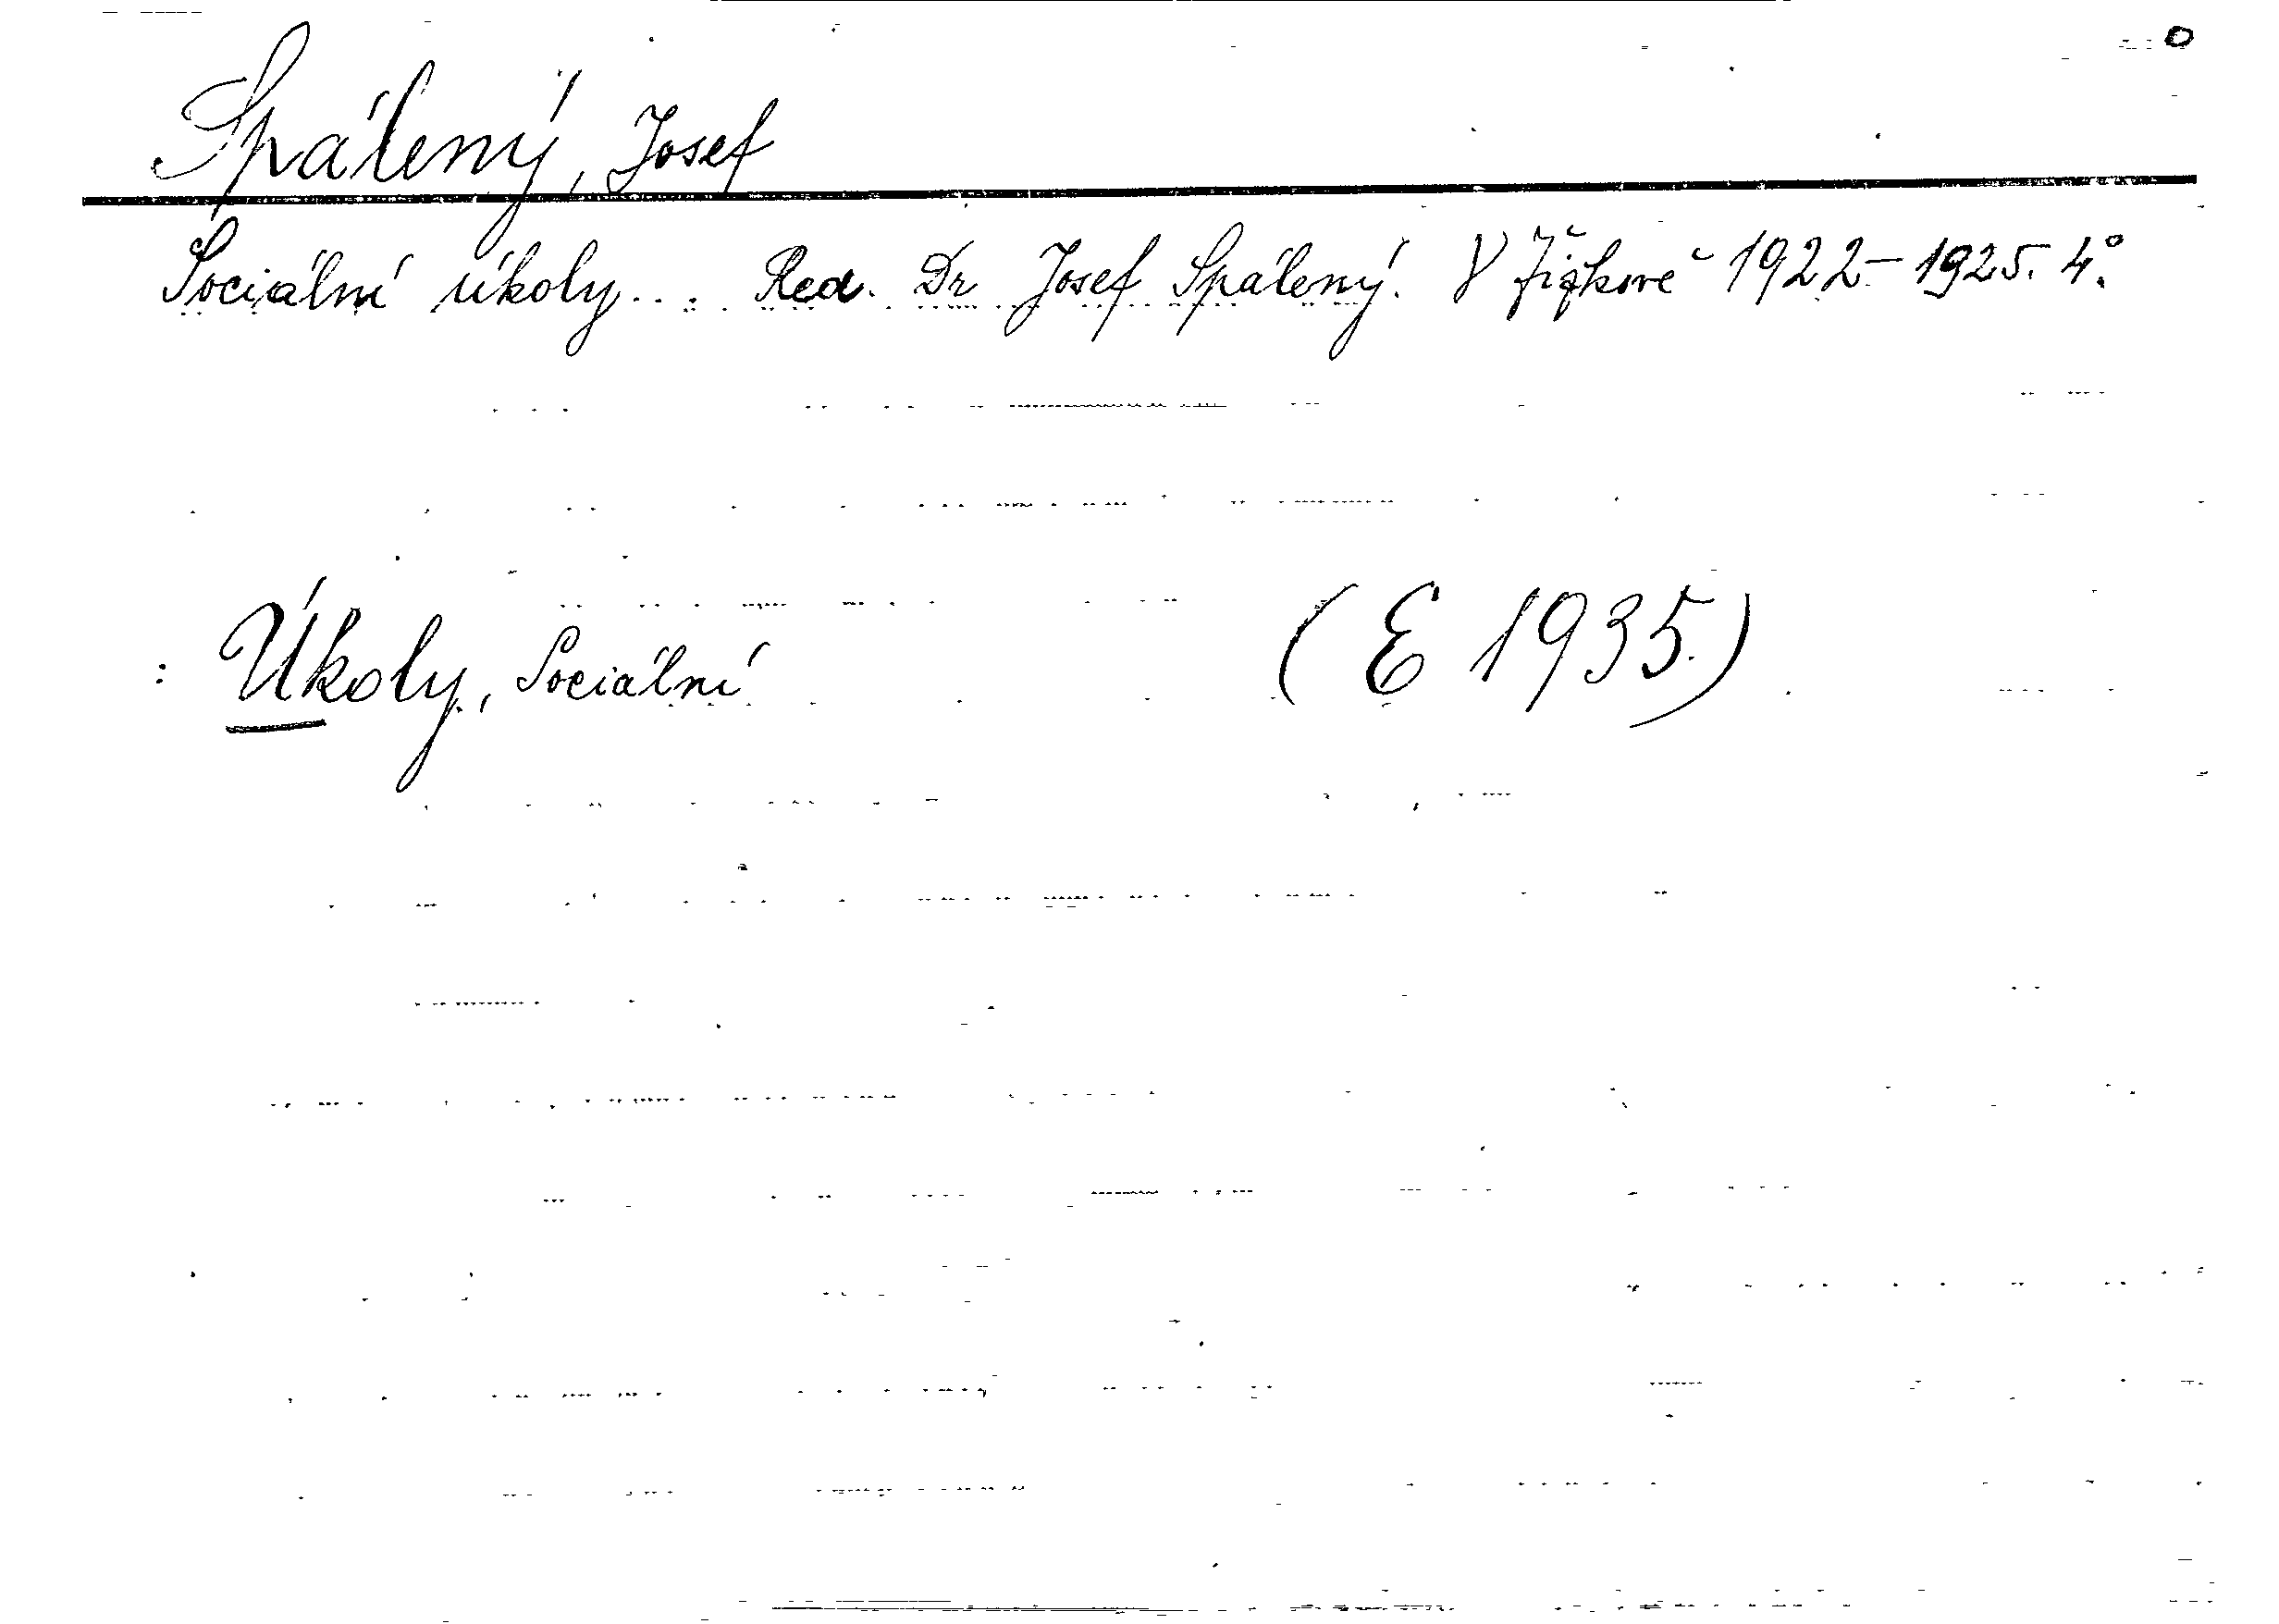 Spálený, Josef
Sociální úkoly... Red. Dr Josef Spálený. V Žižkově 1922–1925. 4°.
: Úkoly, Sociální (E 1935.)